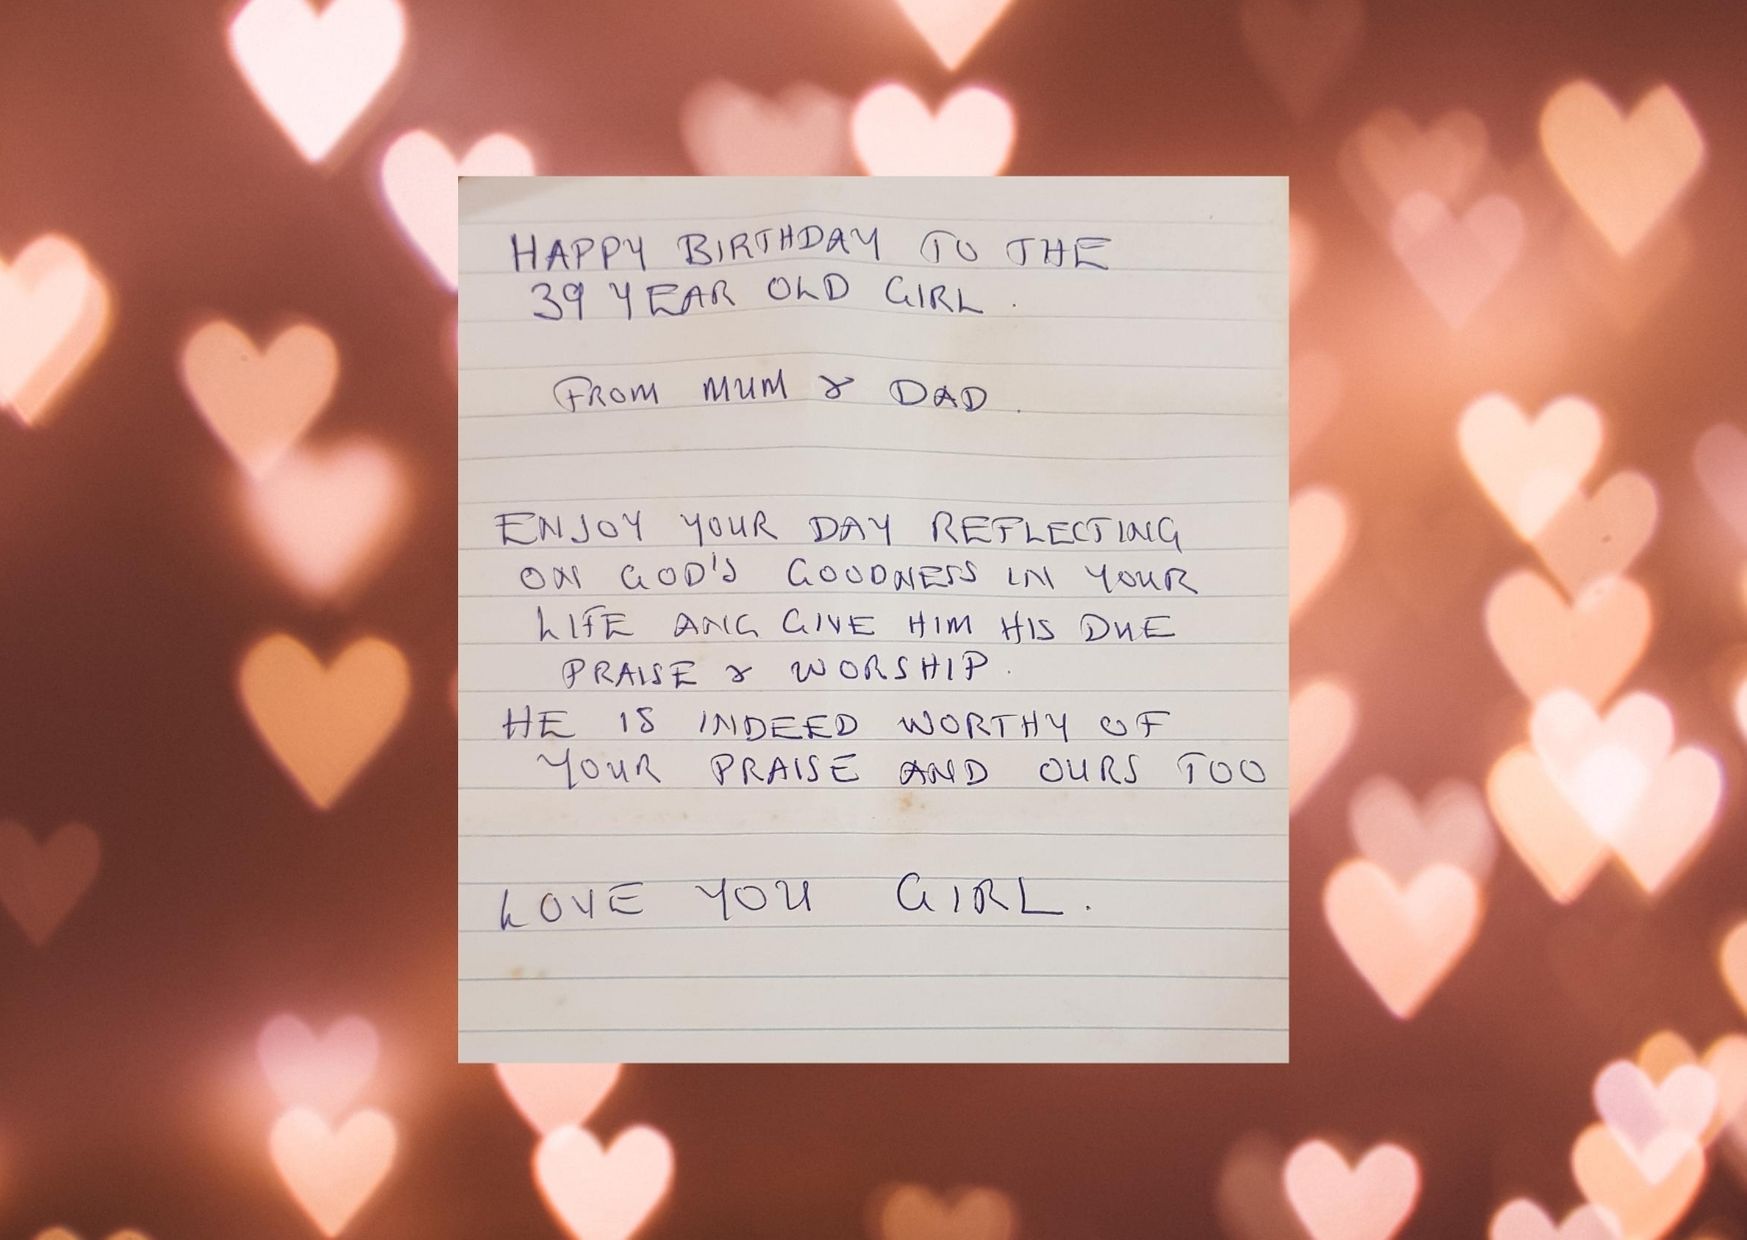 HAPPY BIRTHDAY TO THE
39 YEAR OLD GIRL.
FROM MUM & DAD.
ENJOY YOUR DAY REFLECTING
ON GOD'S GOODNESS IN YOUR
LIFE ANG GIVE HIM HIS DUE
PRAISE & WORSHIP.
HE IS INDEED WORTHY OF
YOUR PRAISE AND OURS TOO
LOVE YOU GIRL.